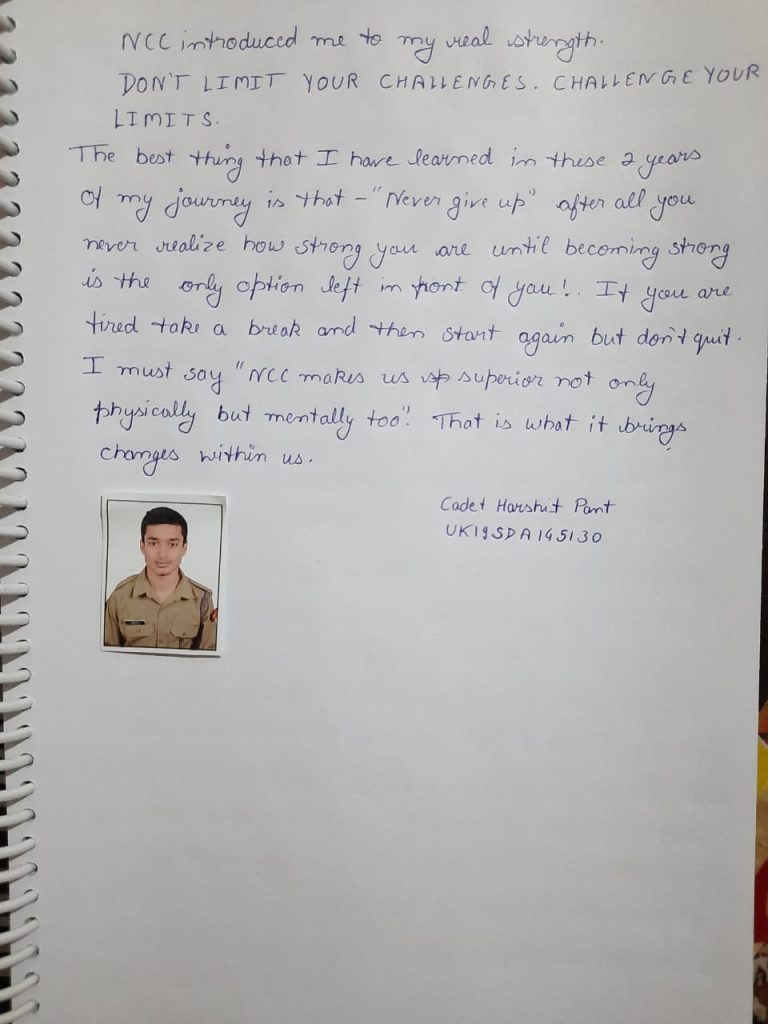 NCC introduced me to my real strength.
DON'T LIMIT YOUR CHALLENGES. CHALLENGE YOUR
LIMITS.
The best thing that I have learned in these 2 years
Of my journey is that - "Never give up" after all you
never realize how strong you are until becoming strong
is the only option left in front of you!. If you are
tired take a break and then start again but don't quit.
I must say "NCC makes us superior not only
physically but mentally too". That is what it brings
changes within us.
Cadet Harshit Pant
UK19SDA145130